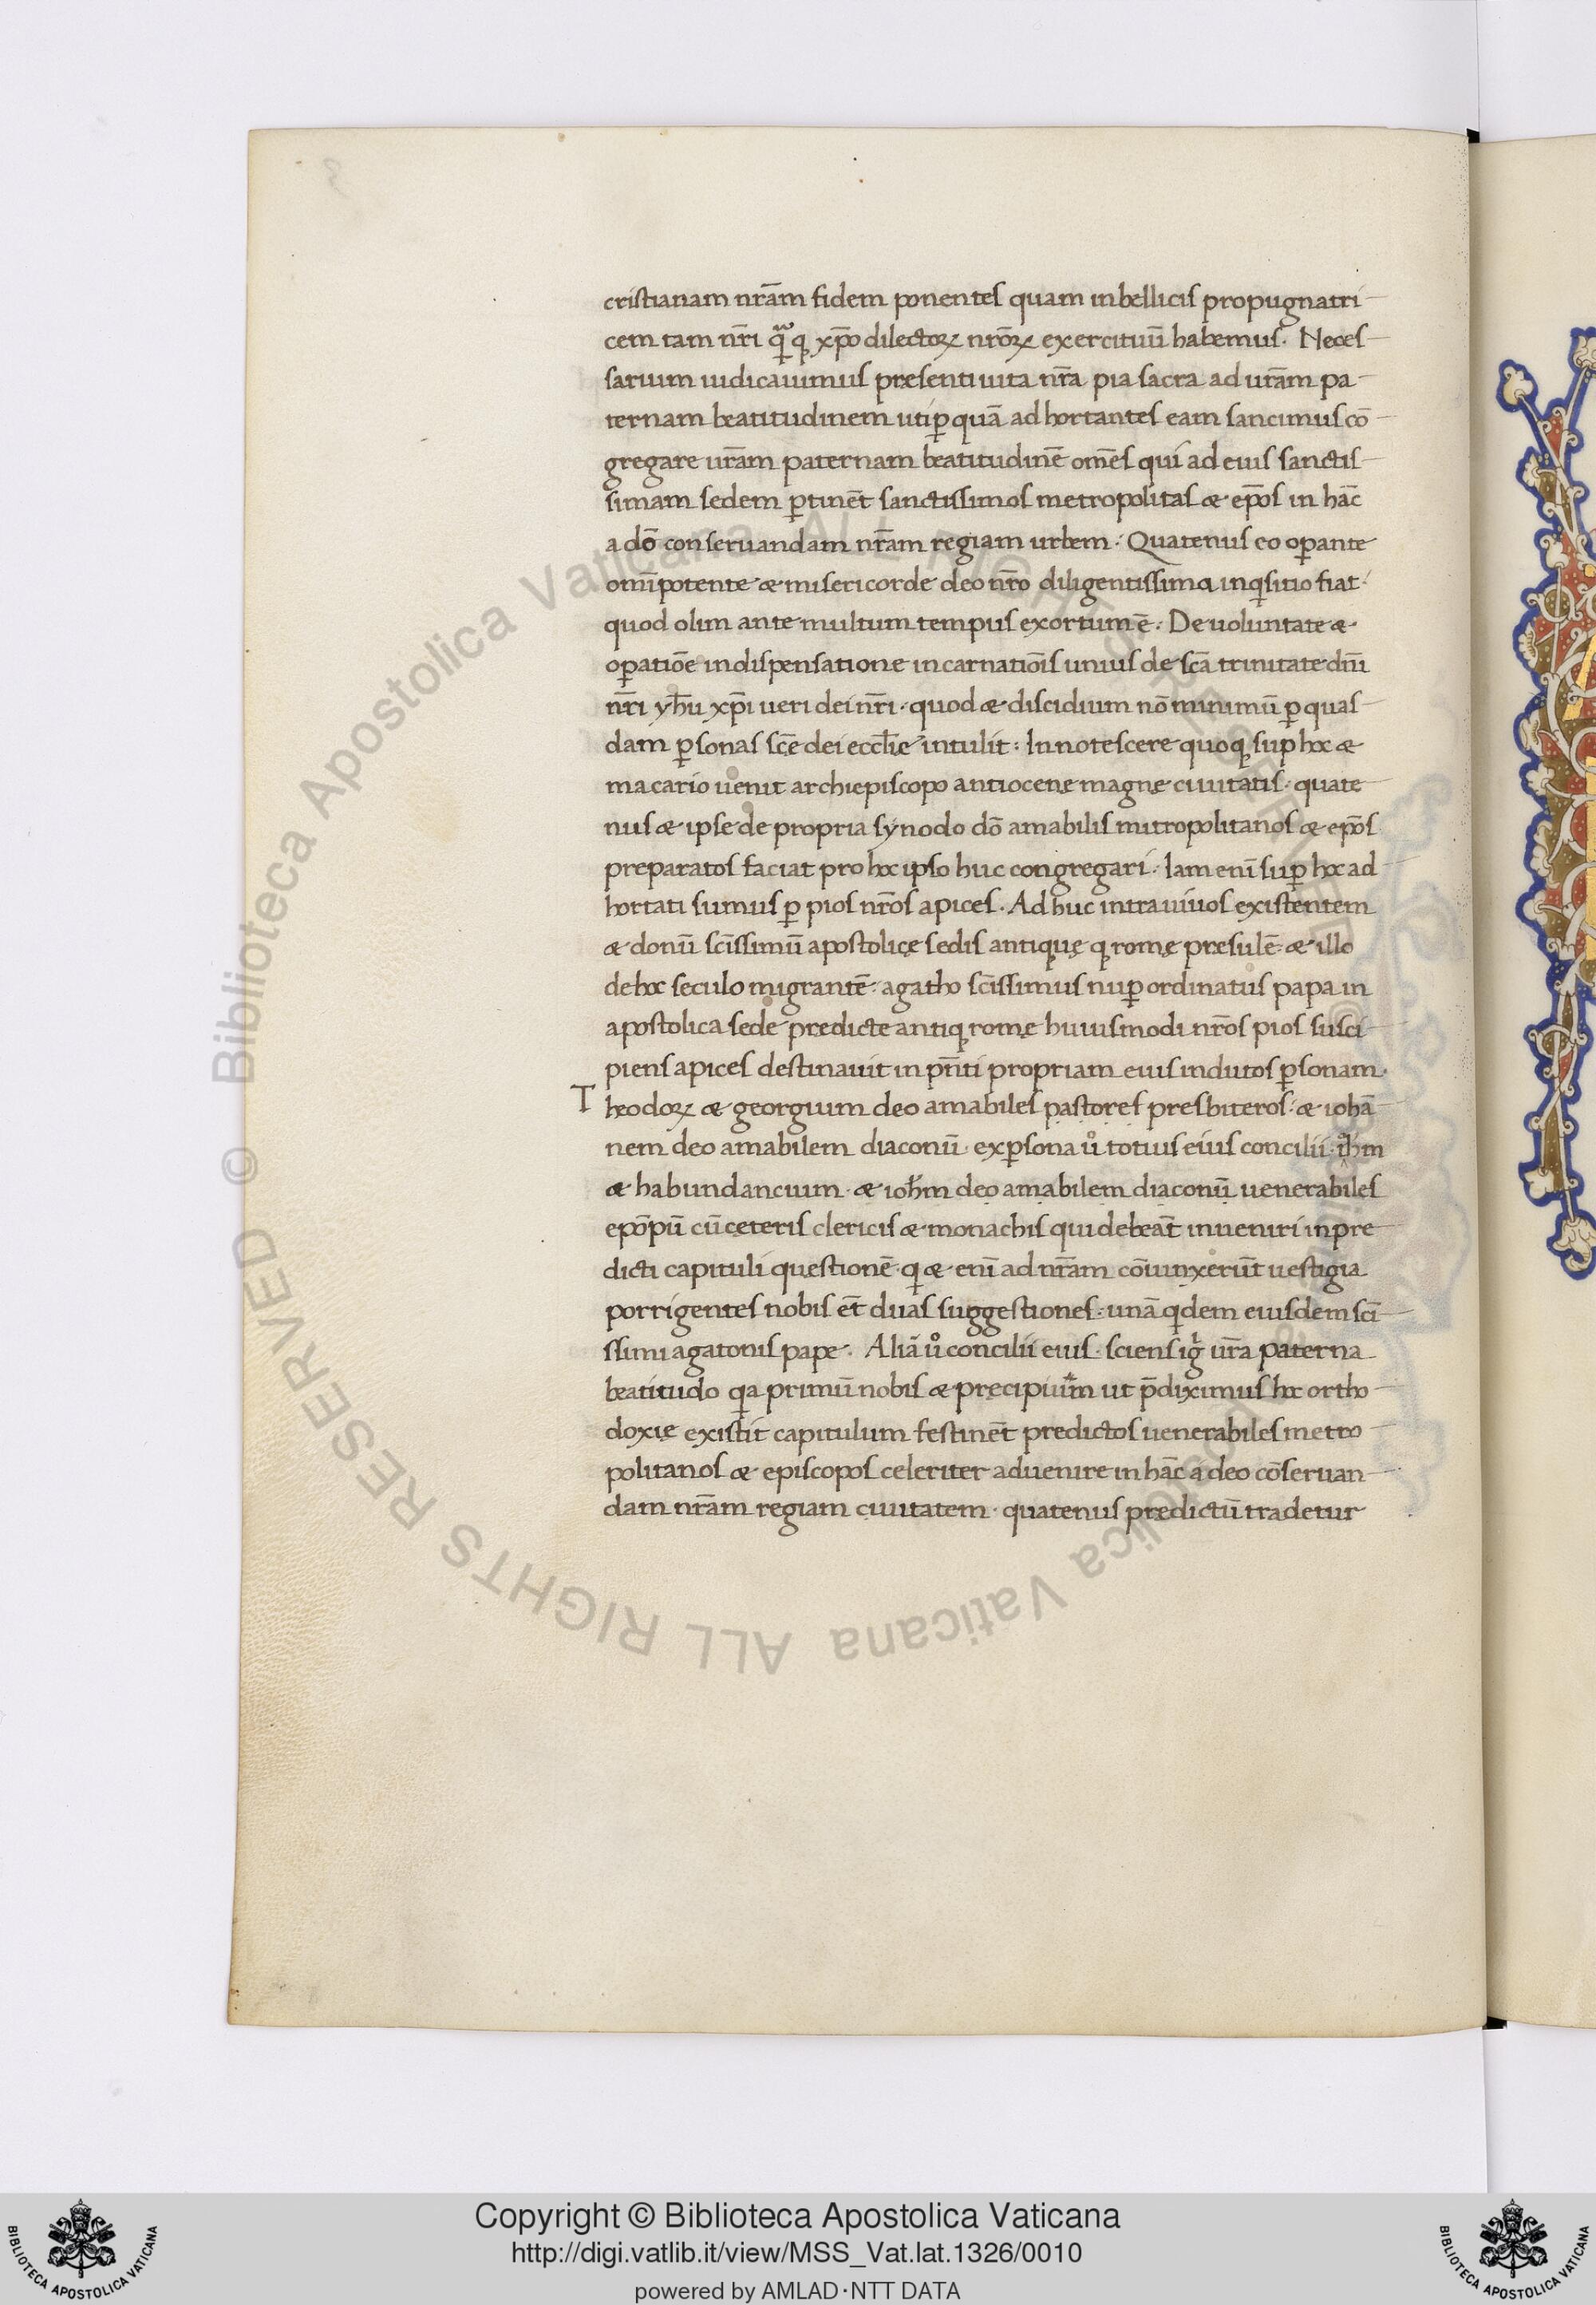 cristianam nr̄am fidem ponentes quam in bellicis propugnatri
cem tam nr̄i q̄q xp̄o dilectoꝝ nr̄oꝝ exercituū habemus. Neces
sarium iudicauimus presenti uita nr̄a pia sacra ad ur̄am pa
ternam beatitudinem uti ꝑ quā ad hortantes eam sancimus cō
gregare ur̄am paternam beatitudinē om̄es qui ad eius sanctis
simam sedem ꝑtinēt sanctissimos metropolitas & ep̄os in hāc
a dō conseruandam nr̄am regiam urbem: Quatenus eo oꝑante
omīpotente & misericorde deo nr̄o diligentissima inqͥsitio fiat.
quod olim ante multum tempus exortum ē: De uoluntate &
oꝑatiōe in dispensatione incarnatiōis unius de sc̄a trinitate dn̄i
nr̄i yh̄u xp̄i ueri dei nr̄i. quod & discidium nō minimū ꝑ quas
dam ꝑsonas sc̄e dei eccl̄ię intulit: Innotescere quoq sup hoc &
macario uenit archiepiscopo antiocene magne ciuitatis. quate
nus & ipse de propria synodo dō amabilis mitropolitanos & ep̄os
preparatos faciat pro hoc ipso huc congregari: Iam enī suꝑ hoc ad
hortati sumus ꝑ pios nr̄os apices. Ad huc intra uiuos existentem
& donū sc̄issimū apostolicę sedis antiquę q romę presulē & illo
de hoc seculo migrantē. agatho sc̄issimus nuꝑ ordinatus papa in
apostolica sede predicte antiq romę huiusmodi nr̄os pios susci
piens apices destinauit in pn̄ti propriam eius indutos ꝑsonam.
Theodoꝝ & georgium deo amabiles pastores presbiteros: & iohā
nem deo amabilem diaconū. ex ꝑsona uͦ totius eius concilii. ioh̄m
& habundancium. & ioh̄m deo amabilem diaconū uenerabiles
epōpū cū ceteris clericis & monachis qui debeāt inueniri in pre
dicti capituli questionē. qͥ & enī ad nr̄am cōiunxerūt uestigia
porrigentes nobis et̄ duas suggestiones: unā qͥdem eiusdem sc̄i
ssimi agatonis pape. Aliā uͦ concilii eius. sciens igͥ ur̄a paterna
beatitudo qͥa primū nobis & pręcipuūm ut p̄diximus hoc ortho
doxię existit capitulum festinēt predictos uenerabiles metro
politanos & episcopos celeriter aduenire in hāc a deo cōseruan
dam nr̄am regiam ciuitatem. quatenus predictū tradetur
© Biblioteca Apostolica Vaticana ALL RIGHTS RESERVED
Copyright © Biblioteca Apostolica Vaticana
http://digi.vatlib.it/view/MSS_Vat.lat.1326/0010
powered by AMLAD·NTT DATA
BIBLIOTECA APOSTOLICA VATICANA
BIBLIOTECA APOSTOLICA VATICANA